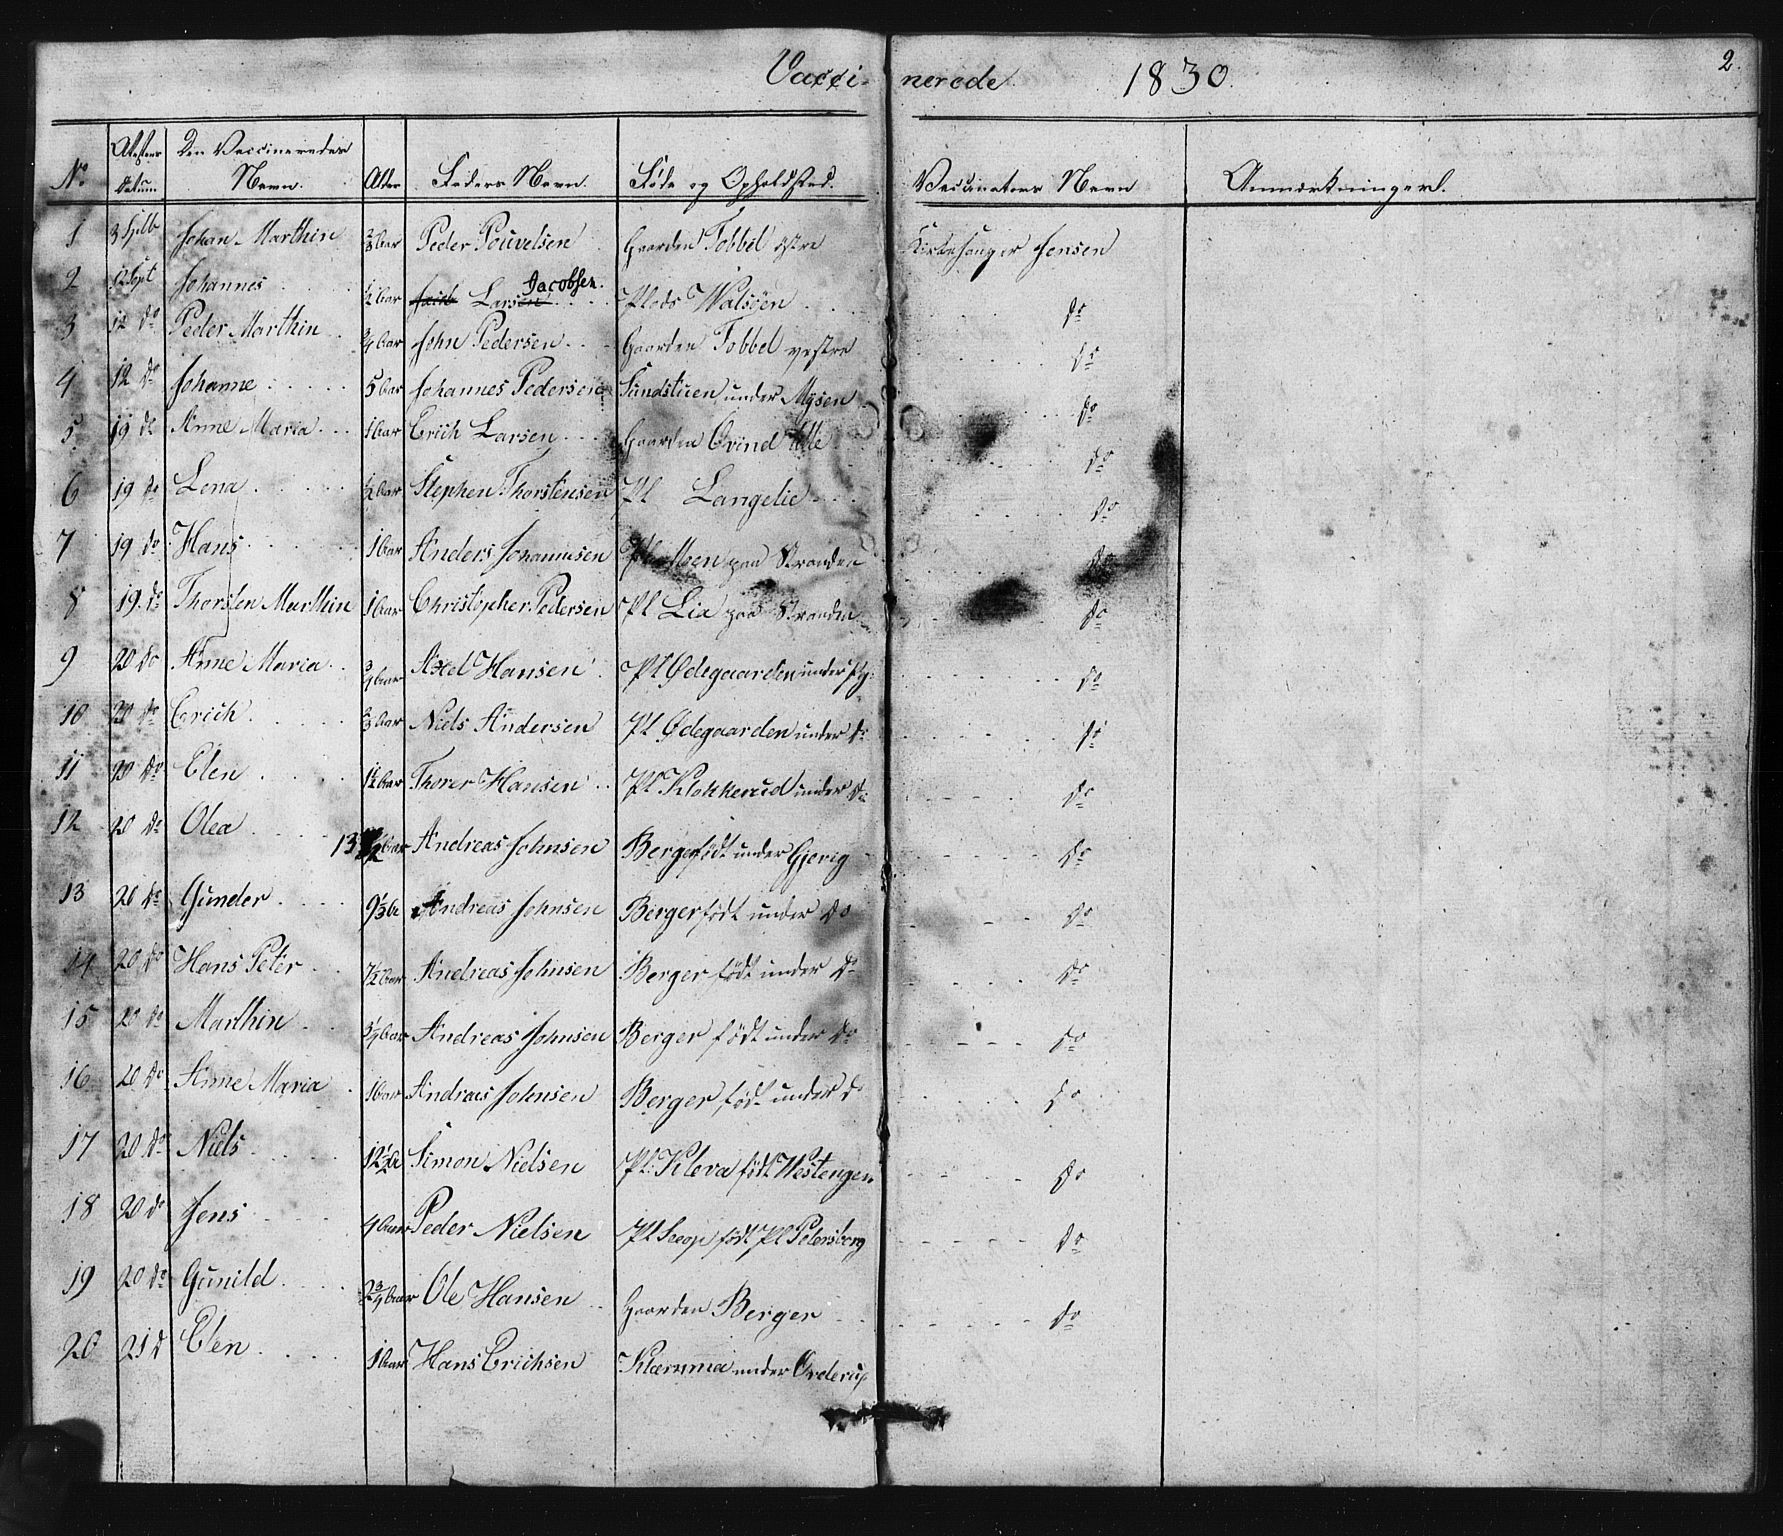 Vacci- nerede 1830. 2.
No Attestens Datum. Den Vaccineredes Navn. Alder Faders Navn. Føde og Opholdsted. Vaccinateurs Navn Anmærkninger.
1 Johan Marthin 2/3 Aar Peder Pouvelsen Gaarden Tobbel østre Kirkesanger Jensen
2 12 Sept Johannes 1/2 Aar Lars Jacobsen. Plads Walsøen do
3 12 do Peder Marthin 3/4 Aar John Pedersen Gaarden Tobbel vestre do
4 12 do Johanne 5 Aar Johannes Pedersen Sundstuen under Mysen do
5 19 do Anne Maria 1 Aar Erich Larsen Gaarden Øvind do
6 19 do Lena 1/2 Aar Stephen Thorstensen Pl Langelie do
7 19 do Hans 1 Aar Anders Johannesen Pl Moen paa Stranden do
8 19. do Thorsten Marthin 1 Aar Christopher Pedersen Pl Lia paa Stranden do
9 20 do Anne Maria 3/4 Aar Axel Hansen Pl Ødegaarden under do
10 20 do Erich 2/3 Aar Niels Andersen Pl Ødegaarden under do do
11 20 do Elen 1 1/2 Aar Thorer Hansen Pl Klokkerud under do do
12 20 do Olea 13 1/2 Aar Andreas Johnsen Berger født under Gjerig do
13 20 do Gunder 9 1/3 Aar Andreas Johnsen Berger født under do do
14 20 do Hans Peter 7 1/2 Aar Andreas Johnsen Berger født under do do
15 20 do Marthin 3 1/4 Aar Andreas Johnsen Berger født under do do
16 20 do Anne Maria 1 Aar Andreas Johnsen Berger født under do do
17 20 do Niels 12 1/2 Aar Simon Nielsen Pl: Kleva født Westengen do
18 20 do Jens 4 Aar Peder Nielsen Pl Seeop født Pl Petersborg do
19 20 do Gunild 2 3/4 Aar Ole Hansen Gaarden Berger do
20 21 d Elen 1 Aar Hans Erichsen Klæmma under Orderup